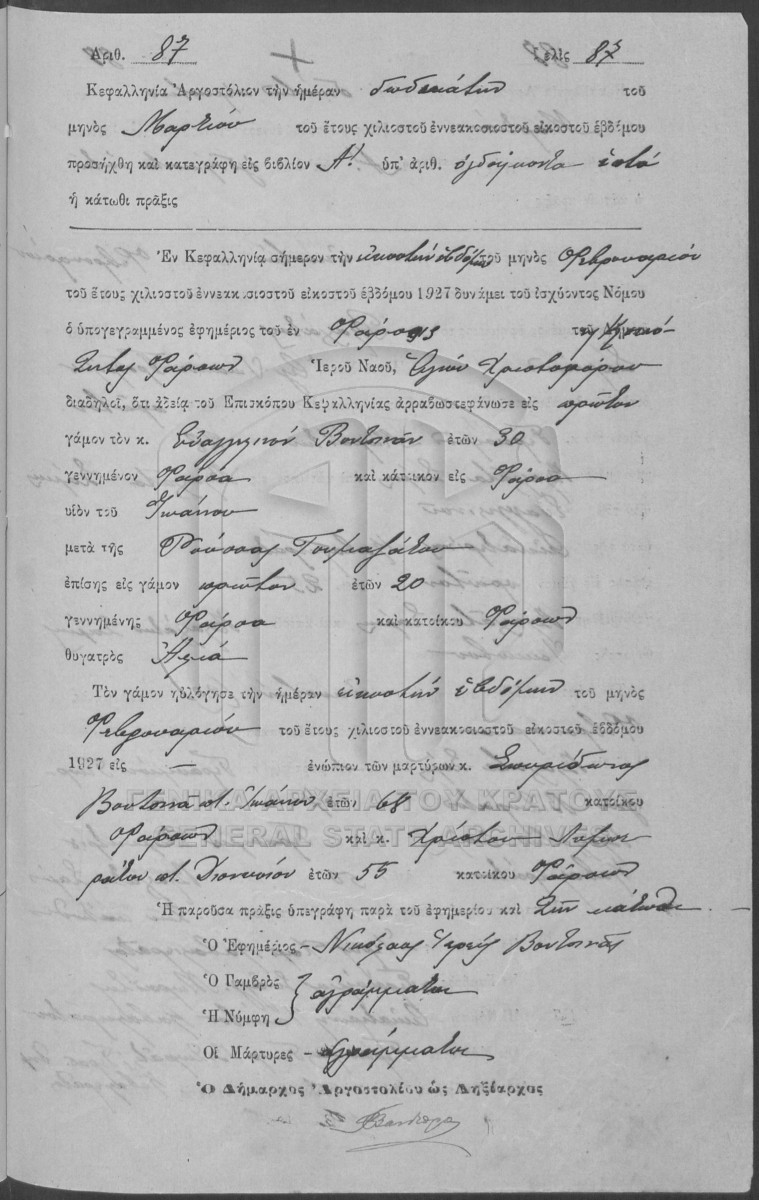 Ἀριθ. 87 Σελὶς 87
Κεφαλληνία Ἀργοστόλιον τὴν ἡμέραν δωδεκάτην τοῦ
μηνὸς Μαρτίου τοῦ ἔτους χιλιοστοῦ ἐννεακοσιοστοῦ εἰκοστοῦ ἑβδόμου
προσήχθη καὶ κατεγράφη εἰς βιβλίον Α' ὑπ' ἀριθ. ὀγδοήκοντα ἑπτά
ἡ κάτωθι πρᾶξις
Ἐν Κεφαλληνίᾳ σήμερον τὴν εἰκοστὴν ἑβδόμην τοῦ μηνὸς Φεβρουαρίου
τοῦ ἔτους χιλιοστοῦ ἐννεακοσιοστοῦ εἰκοστοῦ ἑβδόμου 1927 δυνάμει τοῦ ἰσχύοντος Νόμου
ὁ ὑπογεγραμμένος ἐφημέριος τοῦ ἐν Φάρσοις
Φάρσων Ἱεροῦ Ναοῦ, Ἁγίου Χριστοφόρου
διαδηλοῖ, ὅτι ἀδείᾳ τοῦ Ἐπισκόπου Κεφαλληνίας ἀρραβωστεφάνωσε εἰς πρῶτον
γάμον τὸν κ. Εὐαγγελινόν Βουτσινᾶν ἐτῶν 30
γεννημένον Φάρσα καὶ κάτοικον εἰς Φάρσα
υἱὸν τοῦ Ἰωάννου
μετὰ τῆς Ρούσσας Τουμαζάτου
ἐπίσης εἰς γάμον πρῶτον ἐτῶν 20
γεννημένης Φάρσα καὶ κατοίκου Φάρσων
θυγατρὸς
Τὸν γάμον ηὐλόγησε τὴν ἡμέραν εἰκοστὴν ἑβδόμην τοῦ μηνὸς
Φεβρουαρίου τοῦ ἔτους χιλιοστοῦ ἐννεακοσιοστοῦ εἰκοστοῦ ἑβδόμου
1927 εἰς — ἐνώπιον τῶν μαρτύρων κ. Σπυρίδωνος
Βουτσινᾶ Ἰωάννου ἐτῶν 68 κατοίκου
Φάρσων καὶ κ. Χρίστου
Διονυσίου ἐτῶν 55 κατοίκου Φάρσων
Ἡ παροῦσα πρᾶξις ὑπεγράφη παρὰ τοῦ ἐφημερίου καὶ τῶν κάτωθι —
Ὁ Ἐφημέριος – Νικόλαος Ἱερεύς Βουτσινᾶς
Ὁ Γαμβρὸς
ἀγράμματοι
Ἡ Νύμφη
Οἱ Μάρτυρες – ἀγράμματοι
Ὁ Δήμαρχος Ἀργοστολίου ὡς Ληξίαρχος
ΓΕΝΙΚΑ ΑΡΧΕΙΑ ΤΟΥ ΚΡΑΤΟΥΣ
GENERAL STATE ARCHIVES